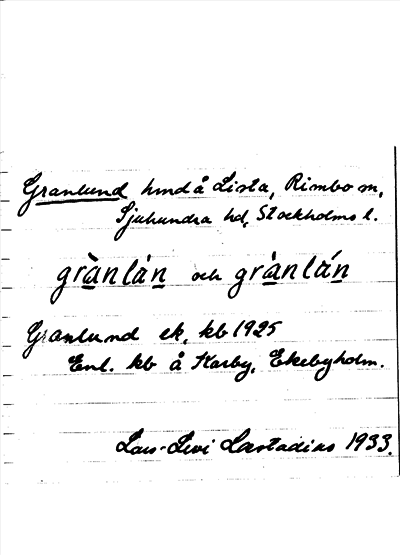 Granlund hmd å Lista, Rimbo sn,
Sjuhundra hd, Stockholms l.
grànlán och grànlán
Granlund ek. kb 1925
Enl. kb å Karby, Ekebyholm.
Lars-Levi Læstadius 1933.